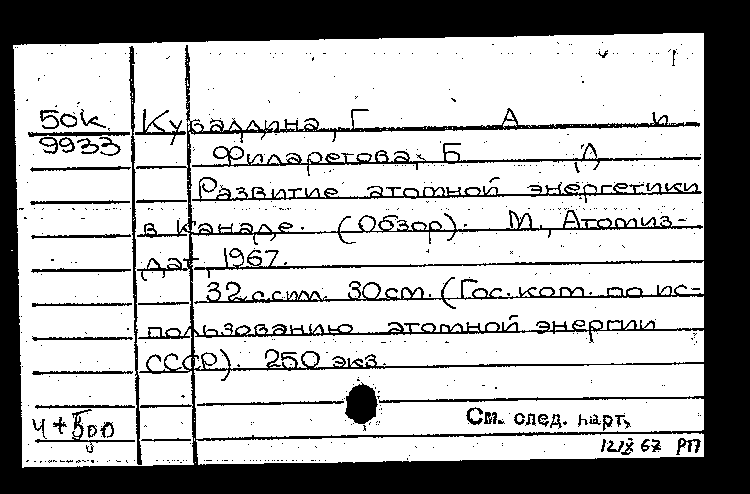 БОК Кувалдина, Г А и
9933 Филаретова, Б Д
Развитие атомной энергетики
в Канаде. (Обзор). М., Атомиз-
дат, 1967.
32 с.ст. 30см. (Гос. ком. по ис-
пользованию атомной энергии
СССР). 250 экз.
См. след. карт.
4+
67 РП